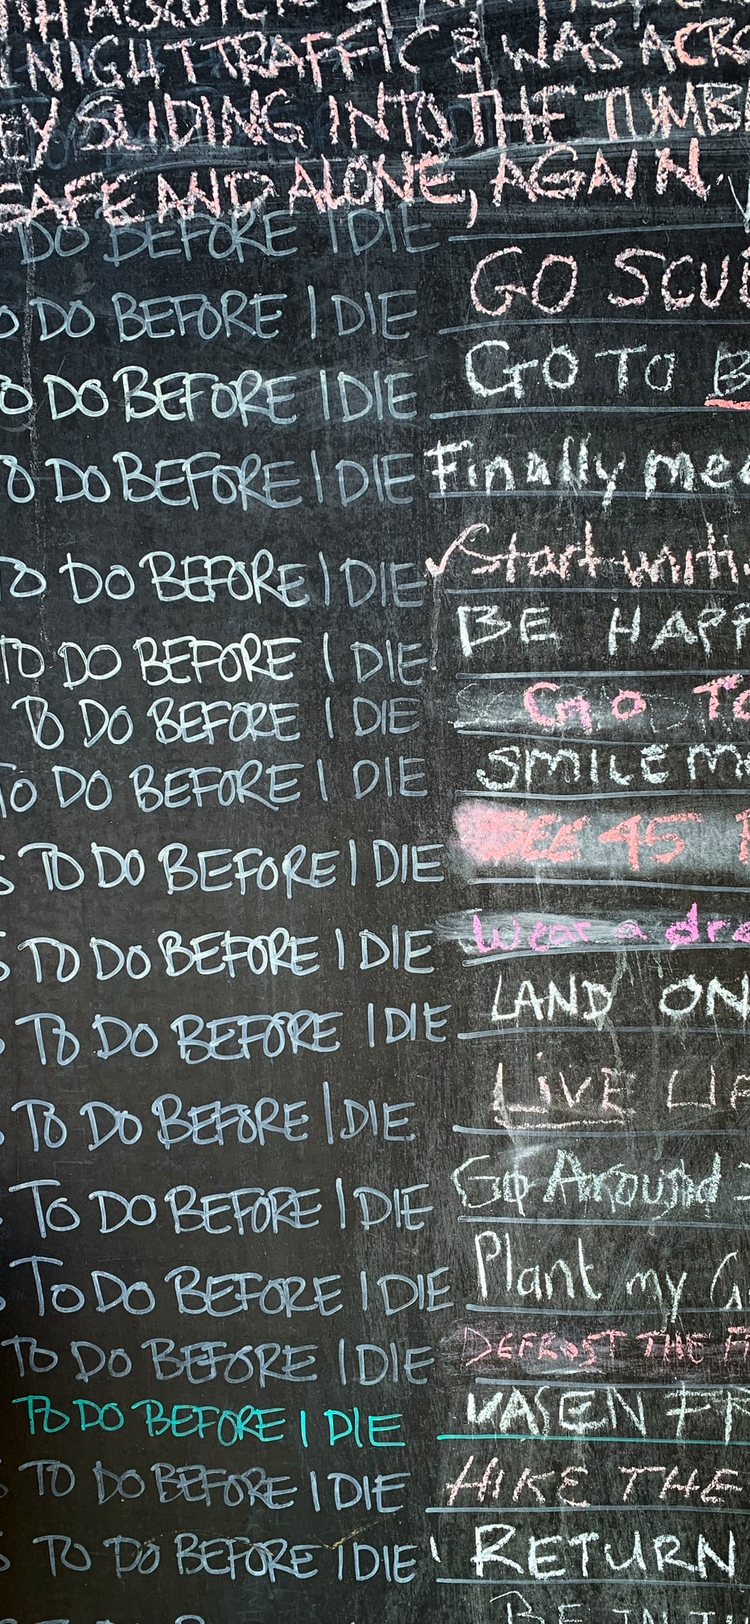 NIGHT TRAFFIC & WAS ACRO
EY SLIDING INTO THE TUMB
SAFE AND ALONE, AGAIN.
DO BEFORE I DIE
O DO BEFORE I DIE GO SCU
O DO BEFORE I DIE GO TO B
O DO BEFORE I DIE Finally mee
TO DO BEFORE I DIE Start writi
TO DO BEFORE I DIE BE HAPP
TO DO BEFORE I DIE GO TO
TO DO BEFORE I DIE SMILE MO
S TO DO BEFORE I DIE SEE 45
S TO DO BEFORE I DIE Wear a dre
S TO DO BEFORE I DIE LAND ON
S TO DO BEFORE I DIE LIVE LIF
S TO DO BEFORE I DIE Go Around
S TO DO BEFORE I DIE Plant my G
TO DO BEFORE I DIE DEFROST THE F
TO DO BEFORE I DIE VASEN FR
S TO DO BEFORE I DIE HIKE THE
S TO DO BEFORE I DIE RETURN
BE IN